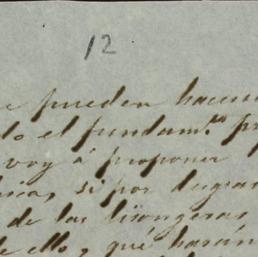 12
e pueden hacerse
lo el fundam.to pr
voy á proponer
si por desgra
de las lisongeras
de ello, qué harán